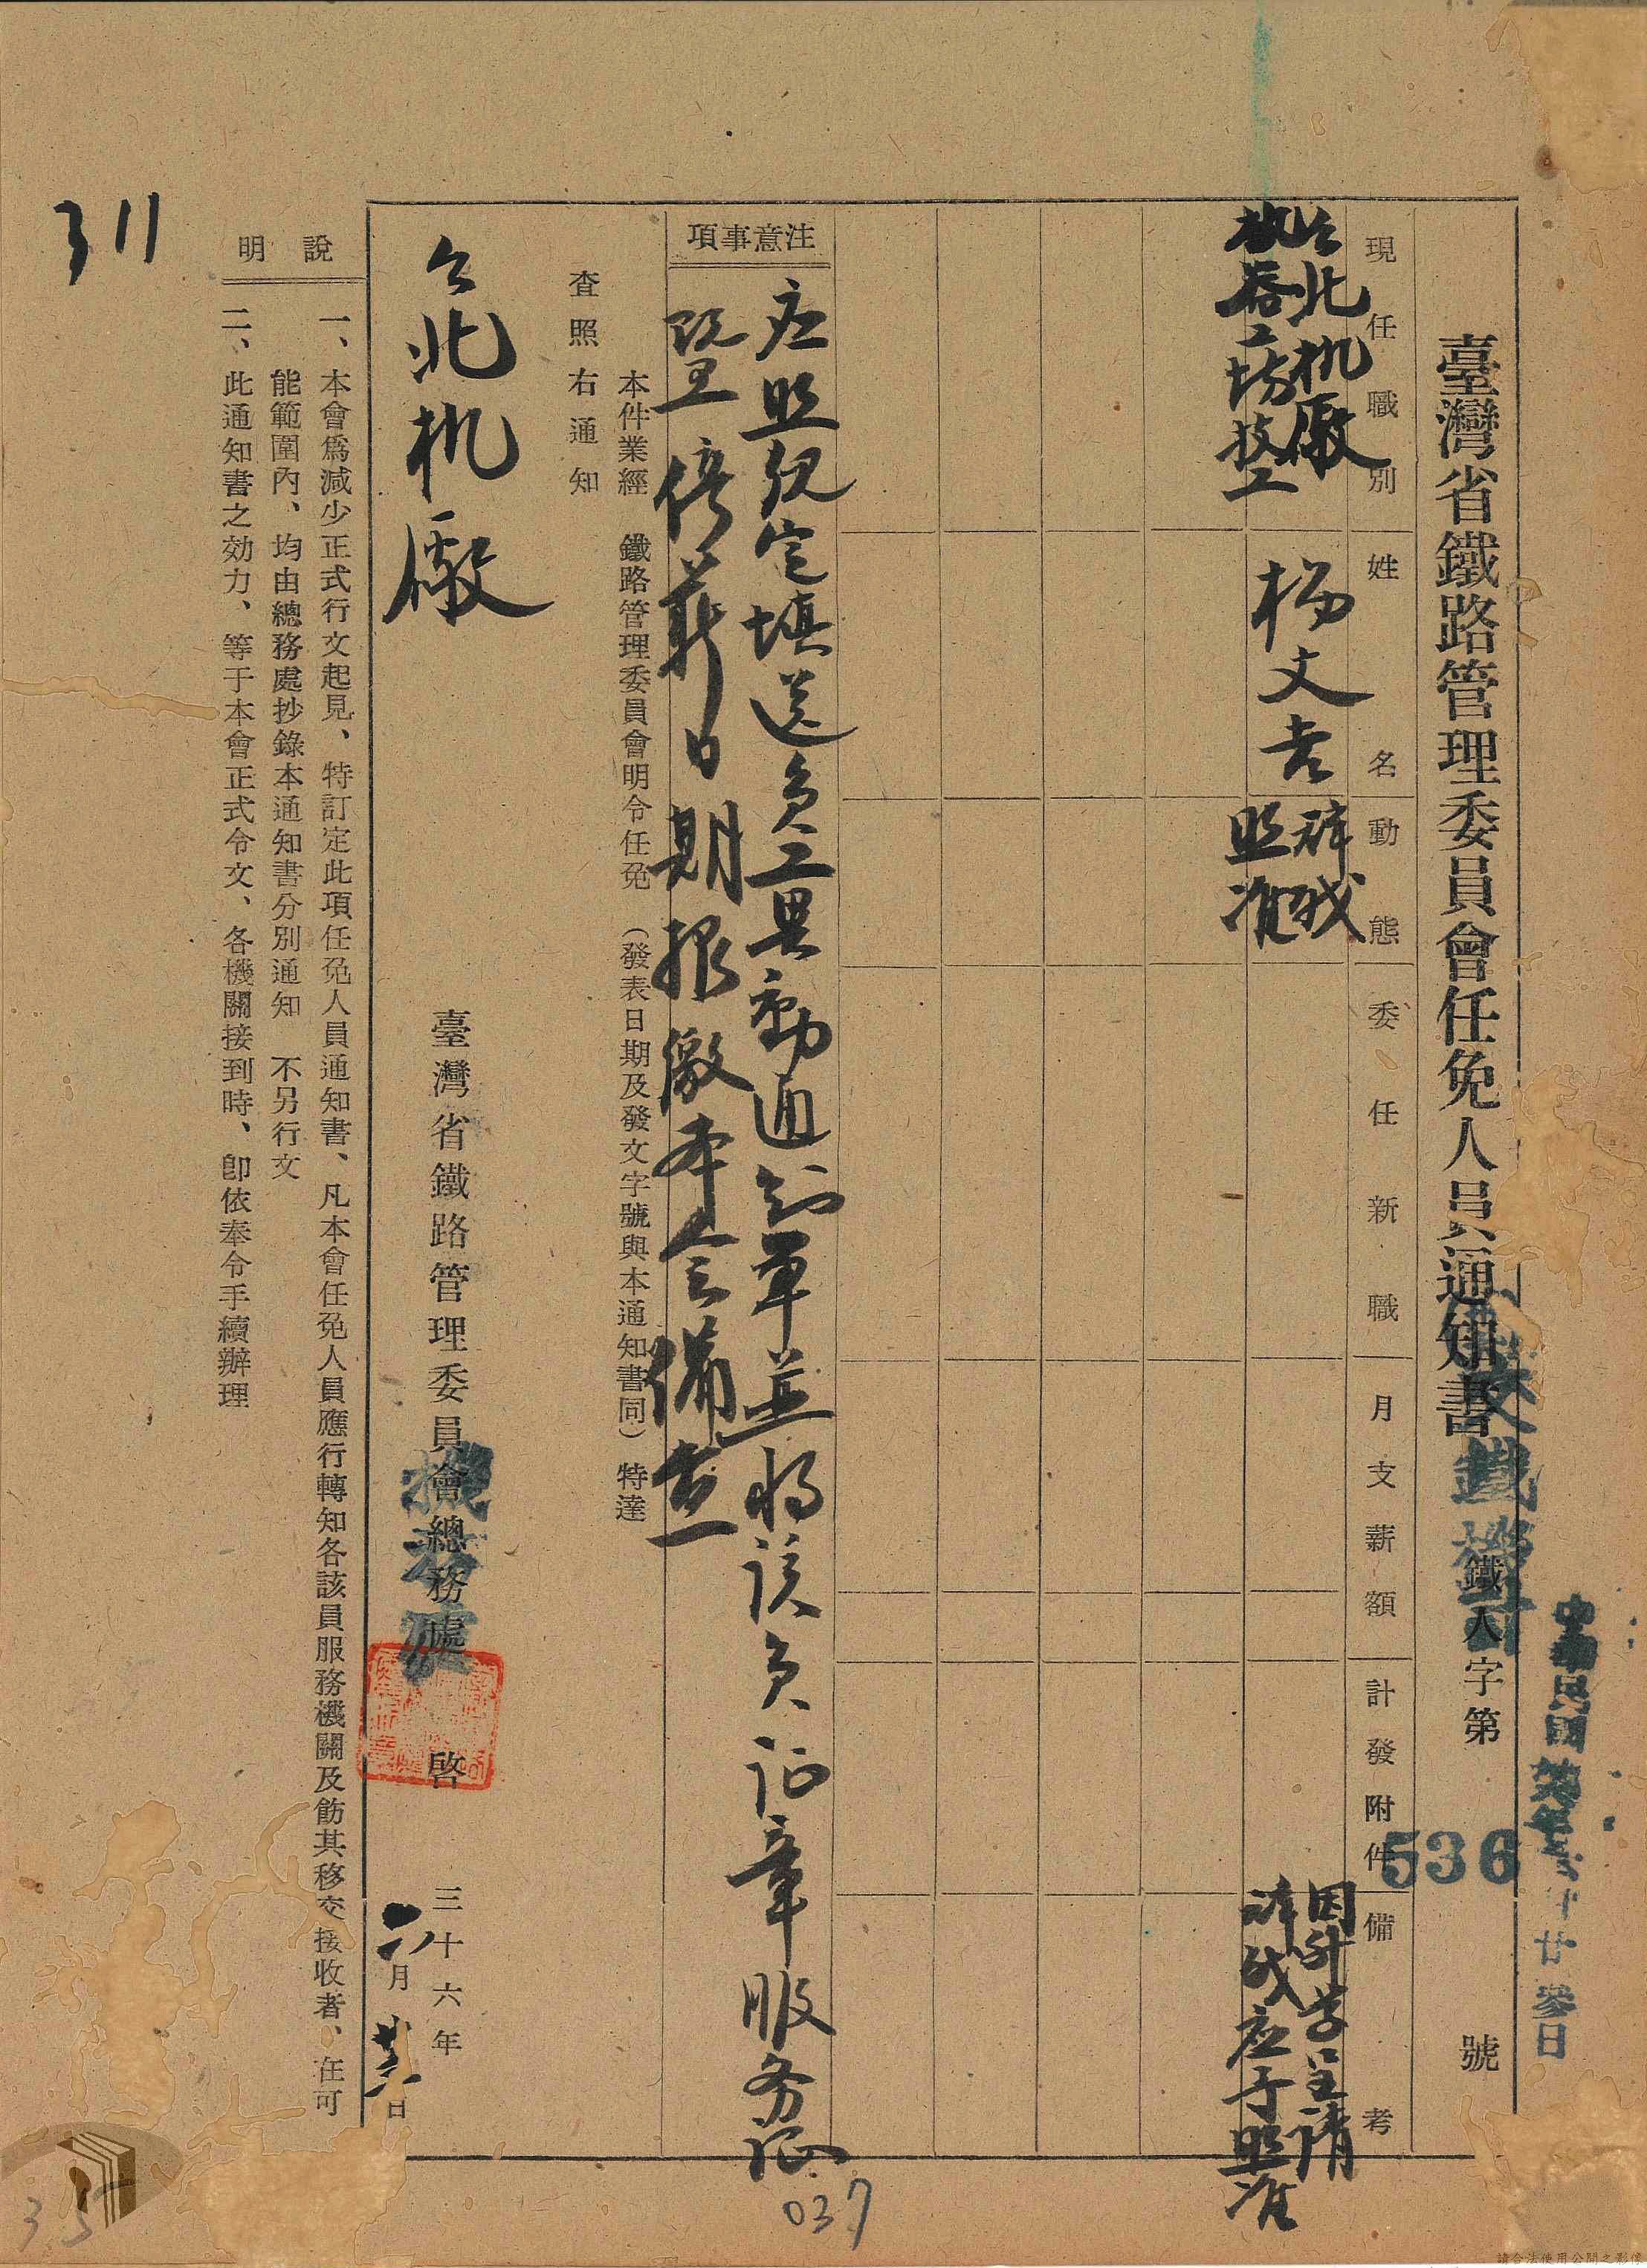 臺灣省鐵路管理委員會任免人員通知書
鐵人字第 536 號
現任職別
姓名
動態
委任新職
月支薪額
計發附件
備考
台北机廠
机器工場技工
杨文吉
辞职
照准
因升学呈请
辞职应予照准
注意事項
应照规定填送员工異動通知单並将该员证章服务证
暨停薪日期报缴本会備查
本件業經 鐵路管理委員會明令任免 (發表日期及發文字號與本通知書同) 特達
查照右通知
台北机廠
臺灣省鐵路管理委員會總務處 啓
機務處
三十六年
月
日
說明
一、本會爲減少正式行文起見、特訂定此項任免人員通知書、凡本會任免人員應行轉知各該員服務機關及飭其移交接收者、在可
能範圍內、均由總務處抄錄本通知書分別通知 不另行文
二、此通知書之効力、等于本會正式令文、各機關接到時、卽依奉令手續辦理
311
037
35
請合法使用公開之影像